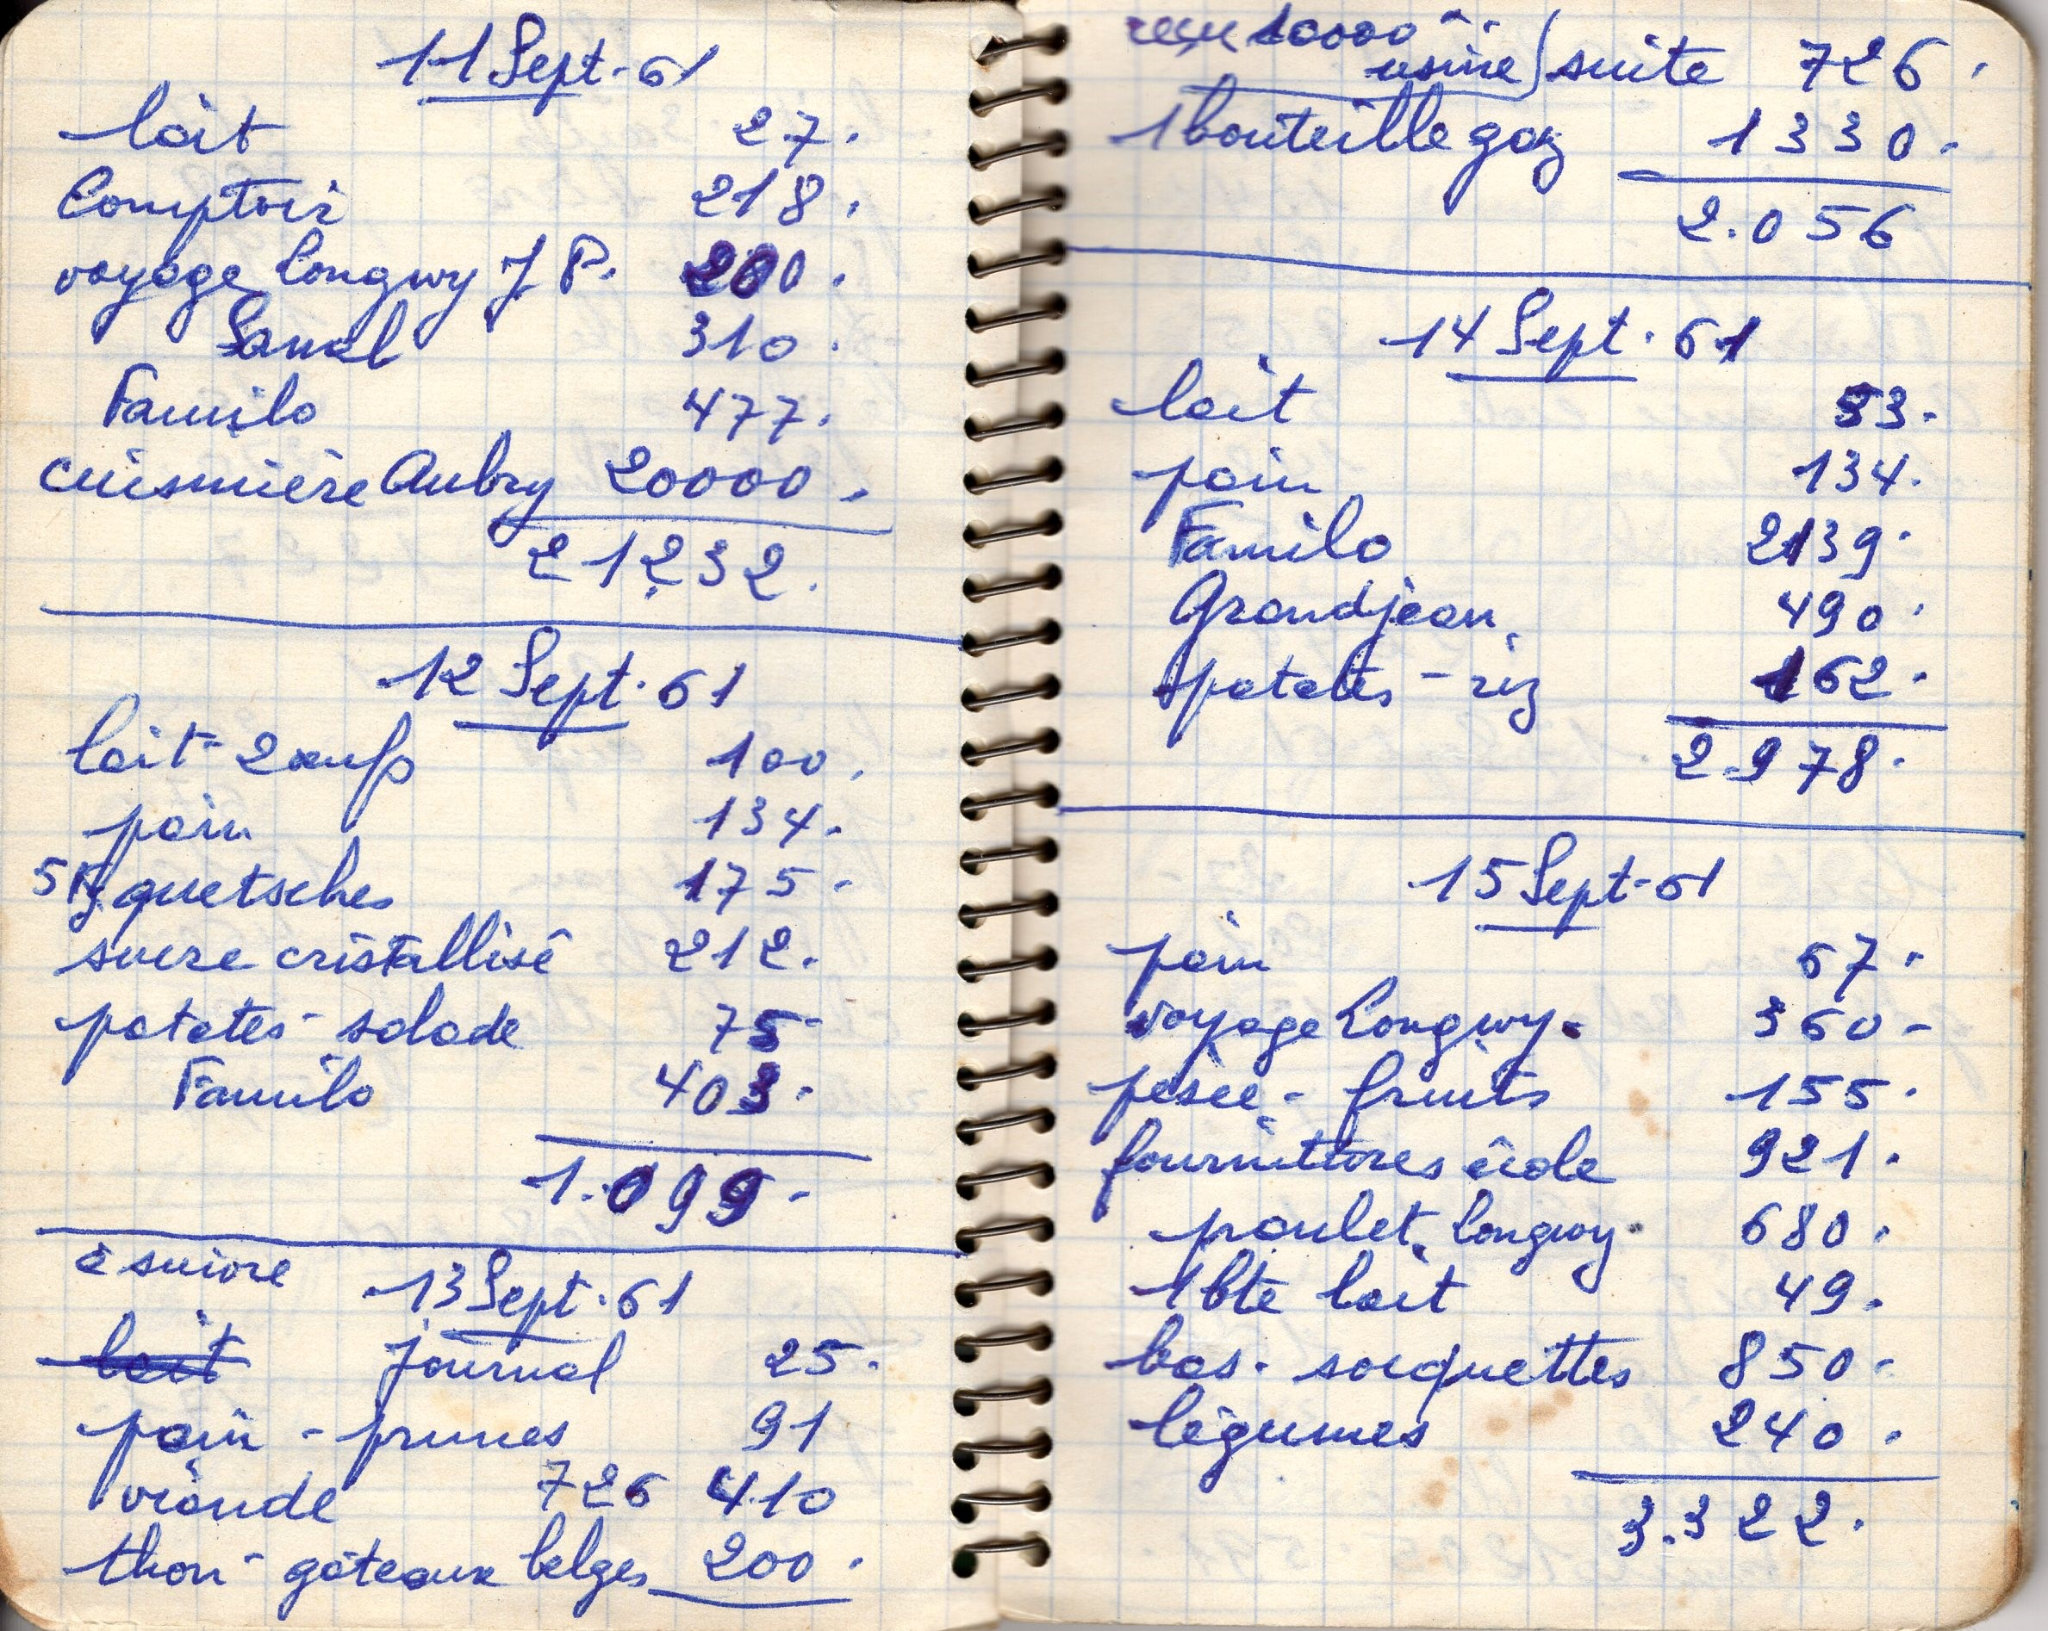 11 Sept. 61
lait 27.
Comptoir 218.
voyage Longwy J P. 200.
Sanal 310.
Familo 477.
cuisinière Aubry 20000.
21232.
12 Sept. 61
lait - 2 œufs 100.
pain 134.
5 Kg quetsches 175.
sucre cristallisé 212.
patates - salade 75-
Familo 403.
1.099.
à suivre 13 Sept. 61
lait journal 25.
pain - prunes 91
viande 726 410
thon - gâteaux belges 200.
reçu 10000 usine) suite 726.
1 bouteille gaz 1330.
2.056
14 Sept. 61
lait 53.
pain 134.
Familo 2139.
Grandjean 490.
patates - riz 162.
2.978.
15 Sept. 61
pain 67.
voyage Longwy. 360-
pesée - fruits 155.
fournitures école 921.
poulet Longwy 680.
1 bte lait 49.
bas - socquettes 850-
légumes 240.
3.322.